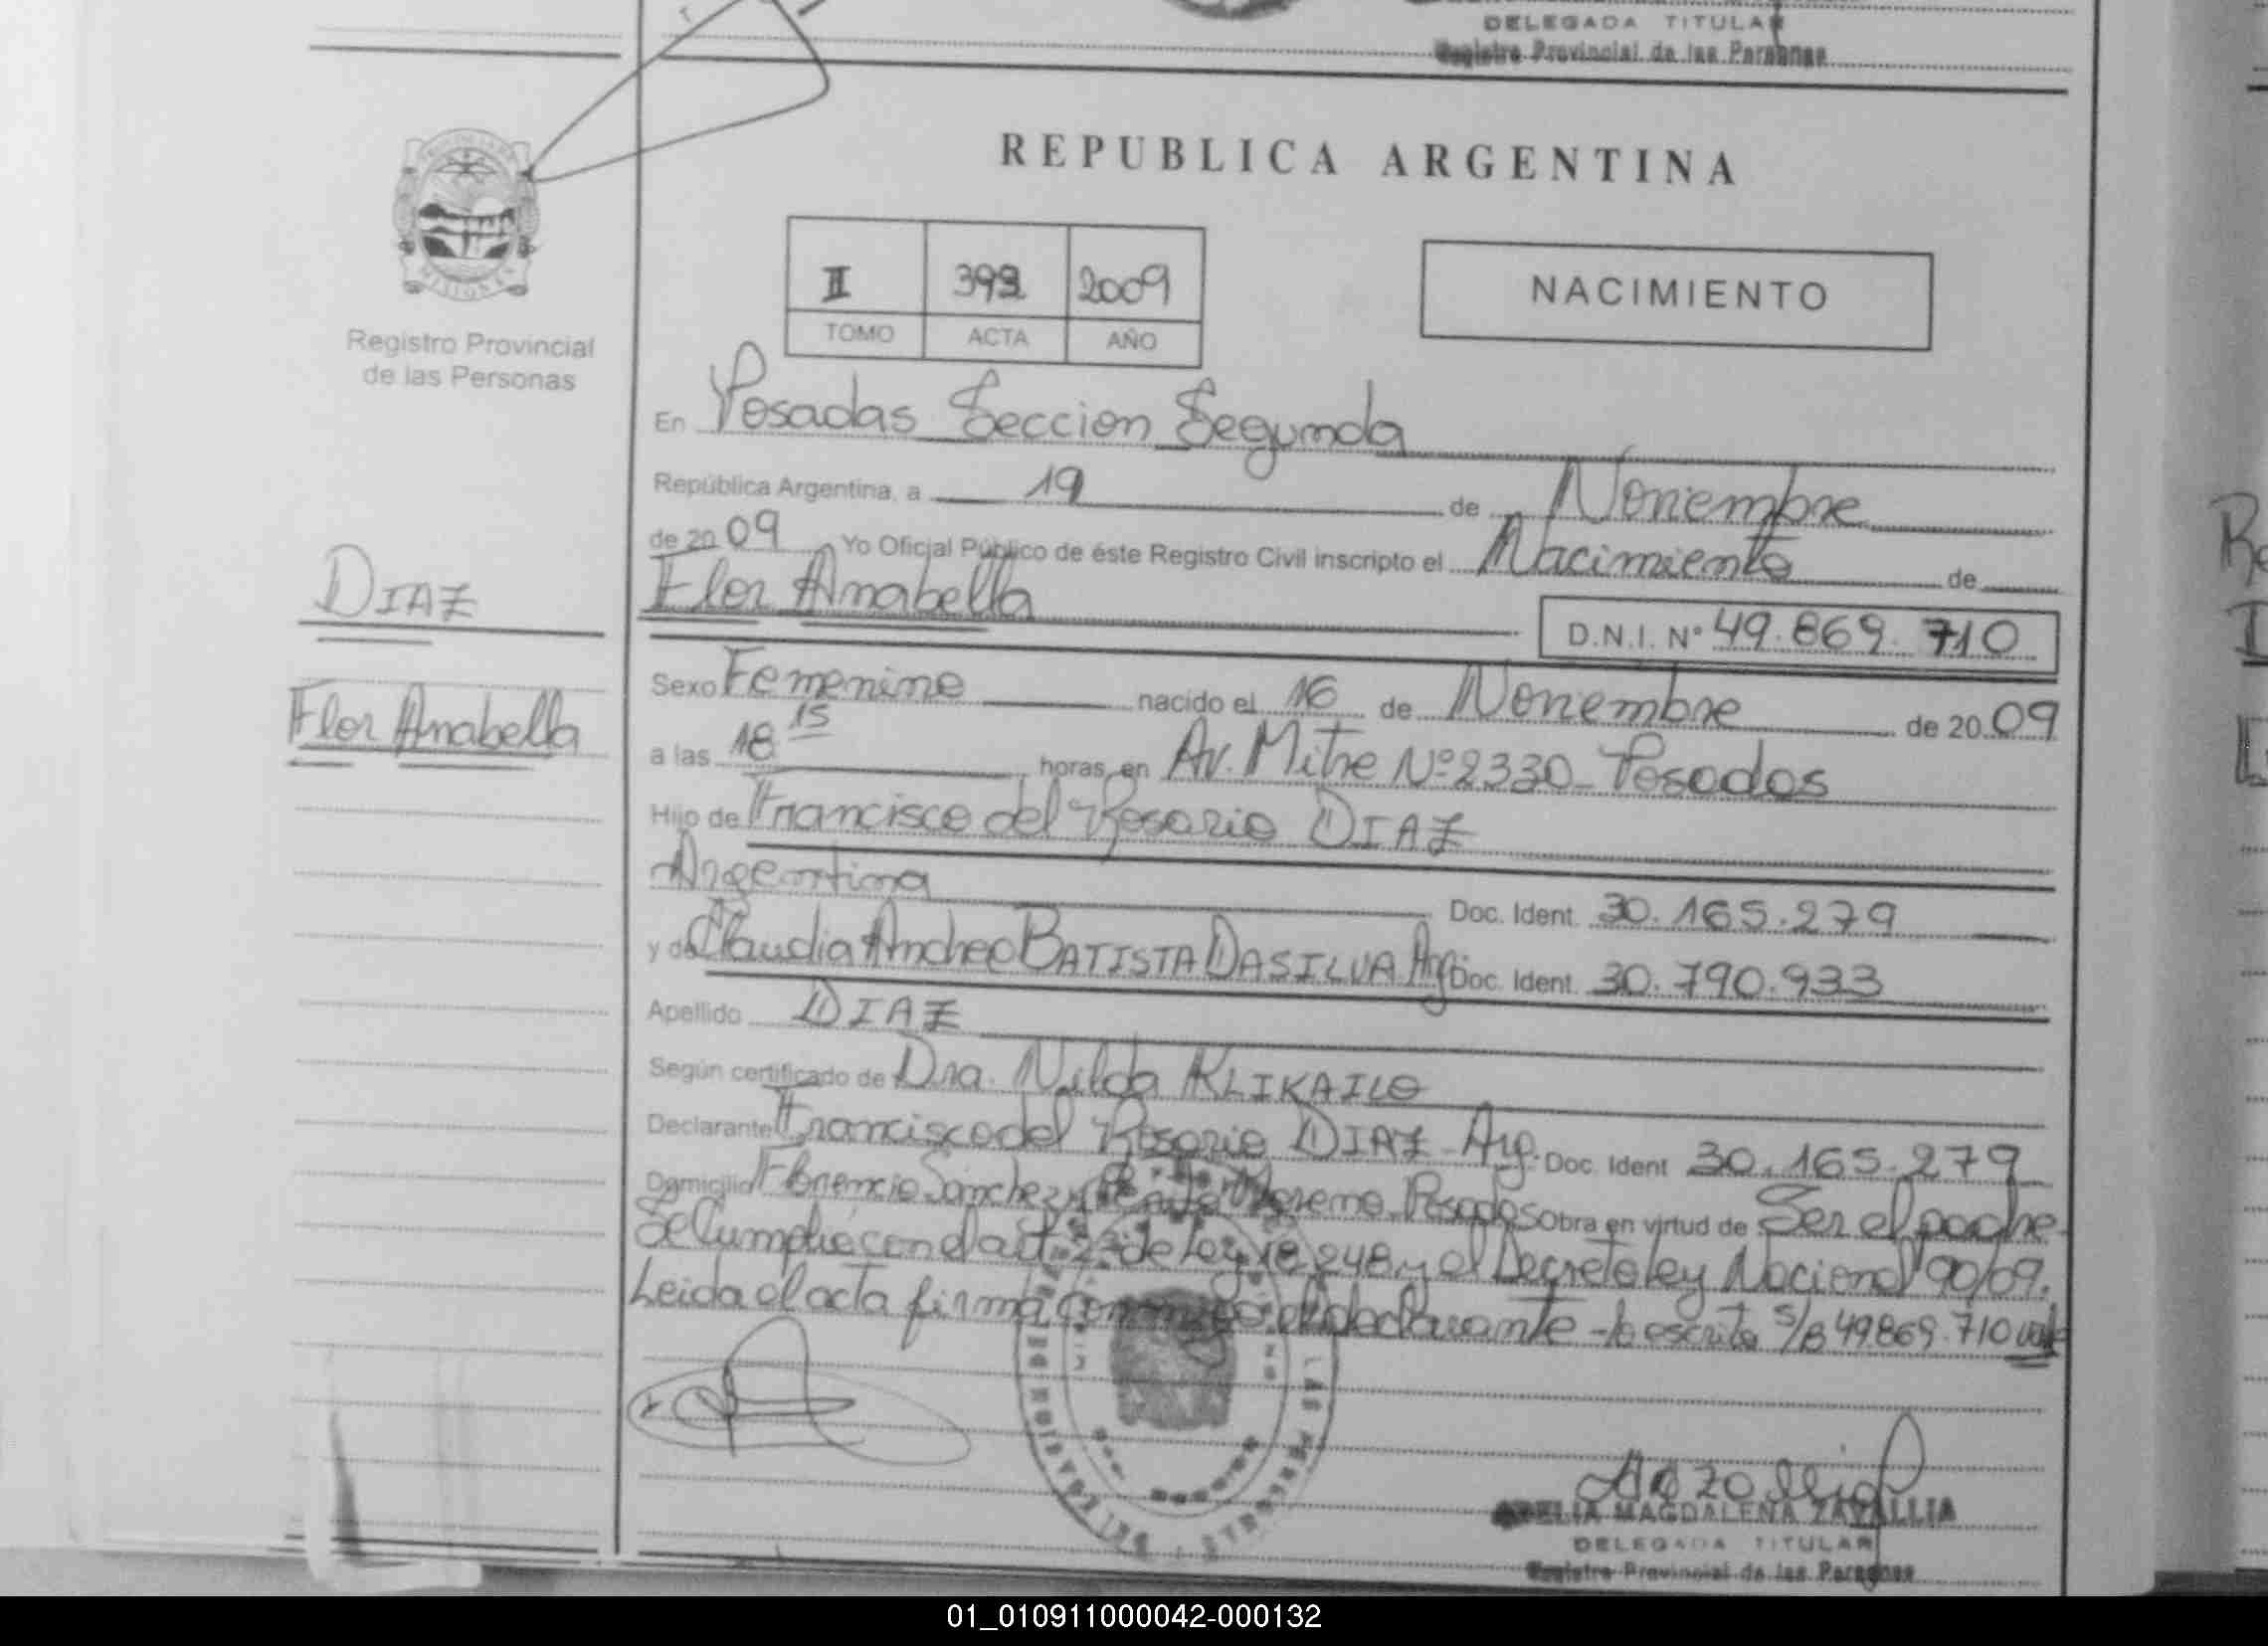 DELEGADA TITULAR
Registro Provincial de las Personas
REPUBLICA ARGENTINA
II 392 2009
TOMO ACTA AÑO
NACIMIENTO
MISIONES
Registro Provincial
de las Personas
DIAZ
Flor Anabella
En Posadas Seccion Segunda
República Argentina, a 19 de Noviembre
de 2009 Yo Oficial Público de éste Registro Civil inscripto el Nacimiento de
Flor Anabella D.N.I. Nº 49.869.710
Sexo Femenino nacido el 16 de Noviembre de 2009
a las 18 15 horas en Av. Mitre Nº 2330 - Posadas
Hijo de Francisco del Rosario DIAZ
Argentina Doc. Ident. 30.165.279
y de Claudia Andrea BATISTA DASILVA Arg. Doc. Ident. 30.790.933
Apellido DIAZ
Según certificado de Dra. Nilda KLIKAILO
Declarante Francisco del Rosario DIAZ - Arg. Doc. Ident 30.165.279
Domicilio Florencio Sanchez y Moreno Posadas Obra en virtud de Ser el padre
Se Cumplio con el art. 2º de Ley 18.248 y el Decreto Ley Nacional 90/09.
Leida el acta firma conmigo el declarante - lo escrito s/b 49.869.710 vale
ZO
MAGDALENA ZAVALLIA
DELEGADA TITULAR
Registro Provincial de las Personas
01_010911000042-000132